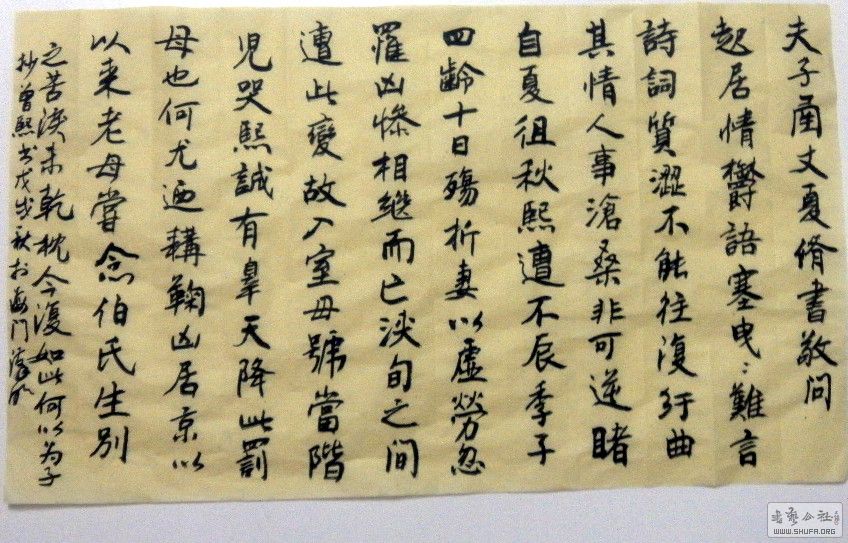 夫子函丈夏脩書敬問
起居情欝語塞曳〻難言
詩詞質澀不能往復紆曲
其情人事滄桑非可逆睹
自夏徂秋熙遭不辰季子
四齡十日殤折妻以虛勞忽
罹凶慘相繼而亡浹旬之間
遭此變故入室毋號當階
兒哭熙誠有辠天降此罰
母也何尤迺稱鞠凶居京以
以来老母嘗念伯氏生別
之苦淚未乾枕今復如此何以为子
抄曾熙书戊戌秋於海门
书艺公社
WWW.SHUFA.ORG